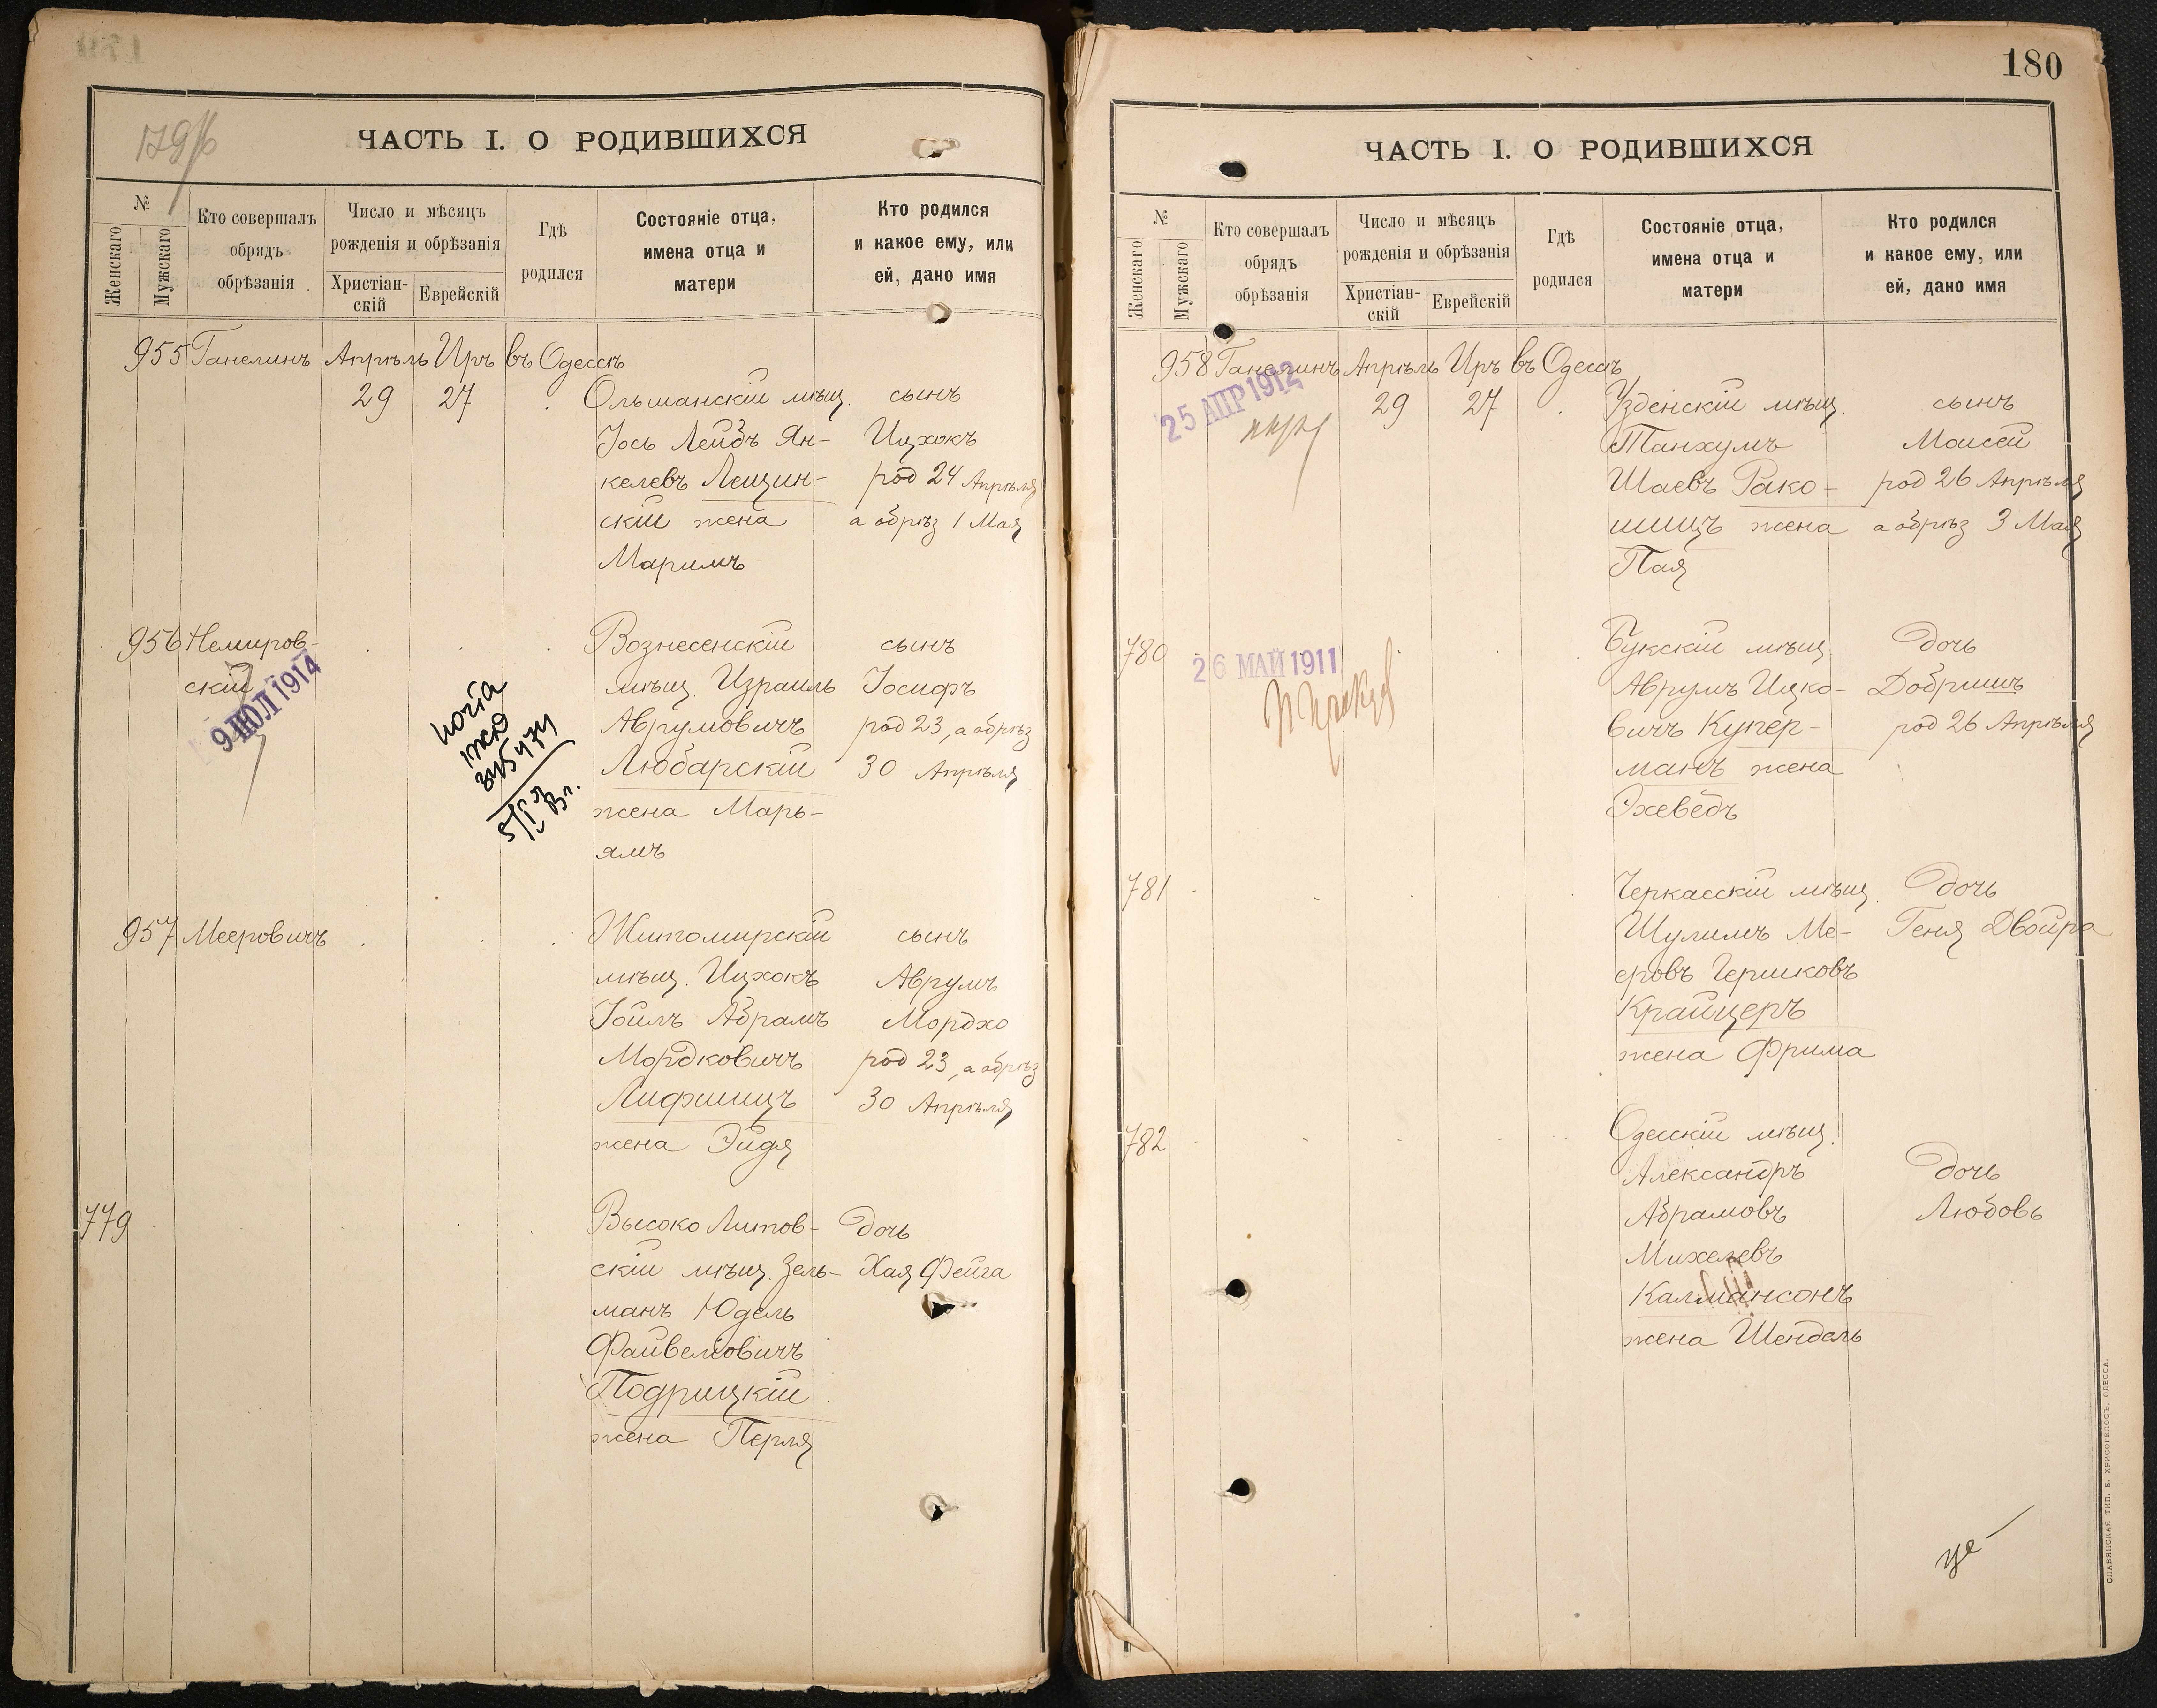 179/б
ЧАСТЬ I. О РОДИВШИХСЯ
№
Женскаго
Мужскаго
Кто совершалъ
обрядъ
обрѣзанія
Число и мѣсяцъ
рожденія и обрѣзанія
Христіан-
скій
Еврейскій
Гдѣ
родился
Состояніе отца,
имена отца и
матери
Кто родился
и какое ему, или
ей, дано имя
955 Ганелинъ Апрѣль Иръ въ Одессѣ
29 27 Ольманскій мѣщ. сынъ
Іось Лейбъ Ян- Ицхокъ
келевъ Лещин- род 24 Апрѣля
скій жена а обрѣз 1 Мая
Маримъ
956 Немиров- Вознесенскій сынъ
скій мѣщ. Израиль Іосифъ
9 ИЮЛ 1914
Аврумовичъ род 23, а обрѣз
Любарскій 30 Апрѣля
жена Марь-
ямъ
957 Мееровичъ Житомирскій сынъ
мѣщ. Ицхокъ Аврумъ
Іойлъ Абрамъ Мордхо
Мордковичъ род 23, а обрѣз
Лифшицъ 30 Апрѣля
жена Эйдя
779 Высоко Литов- дочь
скій мѣщ. Зель- Хая Фейга
манъ Юдель
Файвелевичъ
Подрицкій
жена Перля
180
ЧАСТЬ I. О РОДИВШИХСЯ
№
Женскаго
Мужскаго
Кто совершалъ
обрядъ
обрѣзанія
Число и мѣсяцъ
рожденія и обрѣзанія
Христіан-
скій
Еврейскій
Гдѣ
родился
Состояніе отца,
имена отца и
матери
Кто родился
и какое ему, или
ей, дано имя
958 Ганелинъ Апрѣль Иръ въ Одессѣ
25 АПР 1912
29 27 Узденскій мѣщ. сынъ
Танхумъ Моисей
Шаевъ Рако- род 26 Апрѣля
шицъ жена а обрѣз 3 Мая
Пая
780 Букскій мѣщ. дочь
26 МАЙ 1911
Аврумъ Ицко- Добришъ
вичъ Купер- род 26 Апрѣля
манъ жена
Эхеведъ
781 Черкасскій мѣщ. дочь
Шулимъ Ме- Геня Двойра
еровъ Гершковъ
Крайцеръ
жена Фрима
782 Одесскій мѣщ.
Александръ дочь
Абрамовъ Любовь
Михелевъ
Калмансонъ
жена Шендель
СЛАВЯНСКАЯ ТИП. Е. ХРИСОГЕЛОСЪ, ОДЕССА.